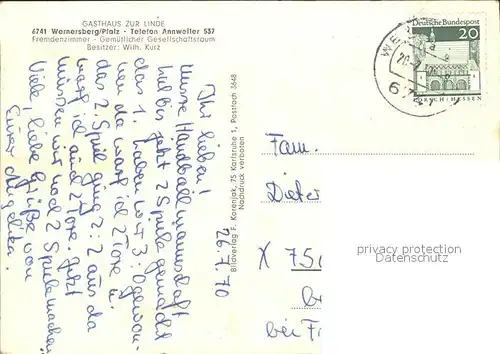 GASTHAUS ZUR LINDE
6741 Wernersberg/Pfalz - Telefon Annweiler 537
Fremdenzimmer - Gemütlicher Gesellschaftsraum
Besitzer: Wilh. Kurz
Ihr lieben!
Unsere Handballmannschaft
hat bis jetzt 2 Spiele gemacht
das 1. haben wir 3:0 gewon-
nen da warf ich 2 Tore u.
das 2. Spiel ging 2:2 aus da
warf ich auch 2 Tore. Jetzt
müssen wir noch 2 Spiele machen
Viele liebe Grüße von
Eurer Angelika.
26.7.70
Bildverlag F. Korenjak, 75 Karlsruhe 1, Postfach 3648
Nachdruck verboten
Deutsche Bundespost
20
LORSCH/HESSEN
Fam.
Dieter
X 75
bei
privacy protection
VEROPAM